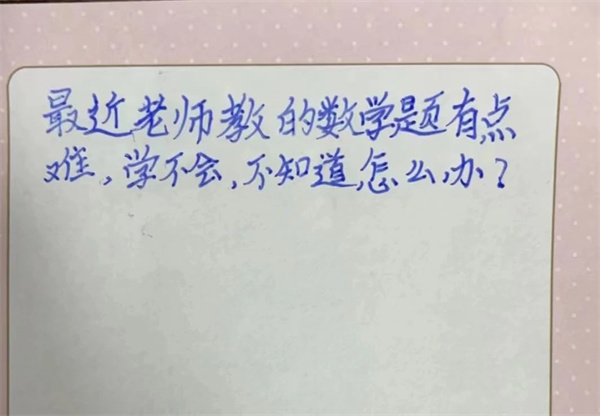 最近老师教的数学题有点
难,学不会,不知道怎么办?